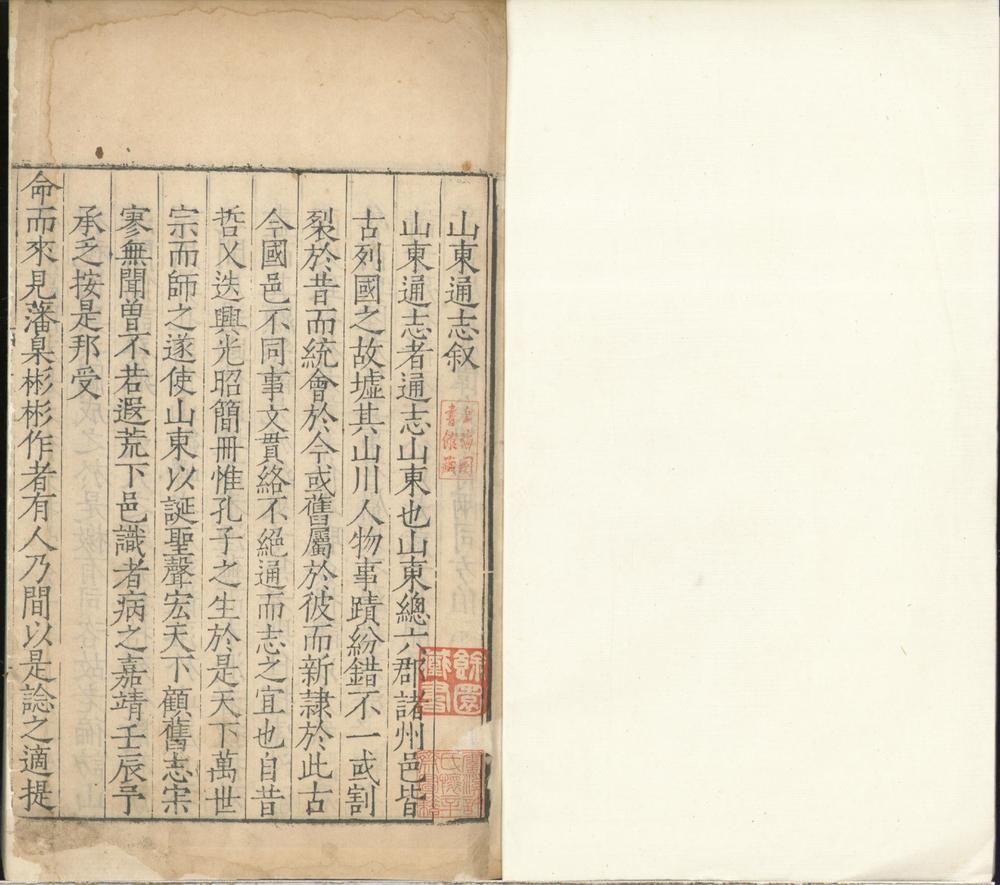 山東通志叙
山東通志者通志山東也山東總六郡諸州邑皆
古列國之故墟其山川人物事蹟紛錯不一或割
裂於昔而統會於今或舊屬於彼而新隷於此古
今國邑不同事文貫絡不絕通而志之宜也自昔
哲乂迭興光昭簡冊惟孔子之生於是天下萬世
宗而師之遂使山東以誕聖聲宏天下顧舊志寀
寥無聞曽不若遐荒下邑識者病之嘉靖壬辰予
承乏按是邦受
命而來見藩臬彬彬作者有人乃間以是諗之適提
餘園藏書